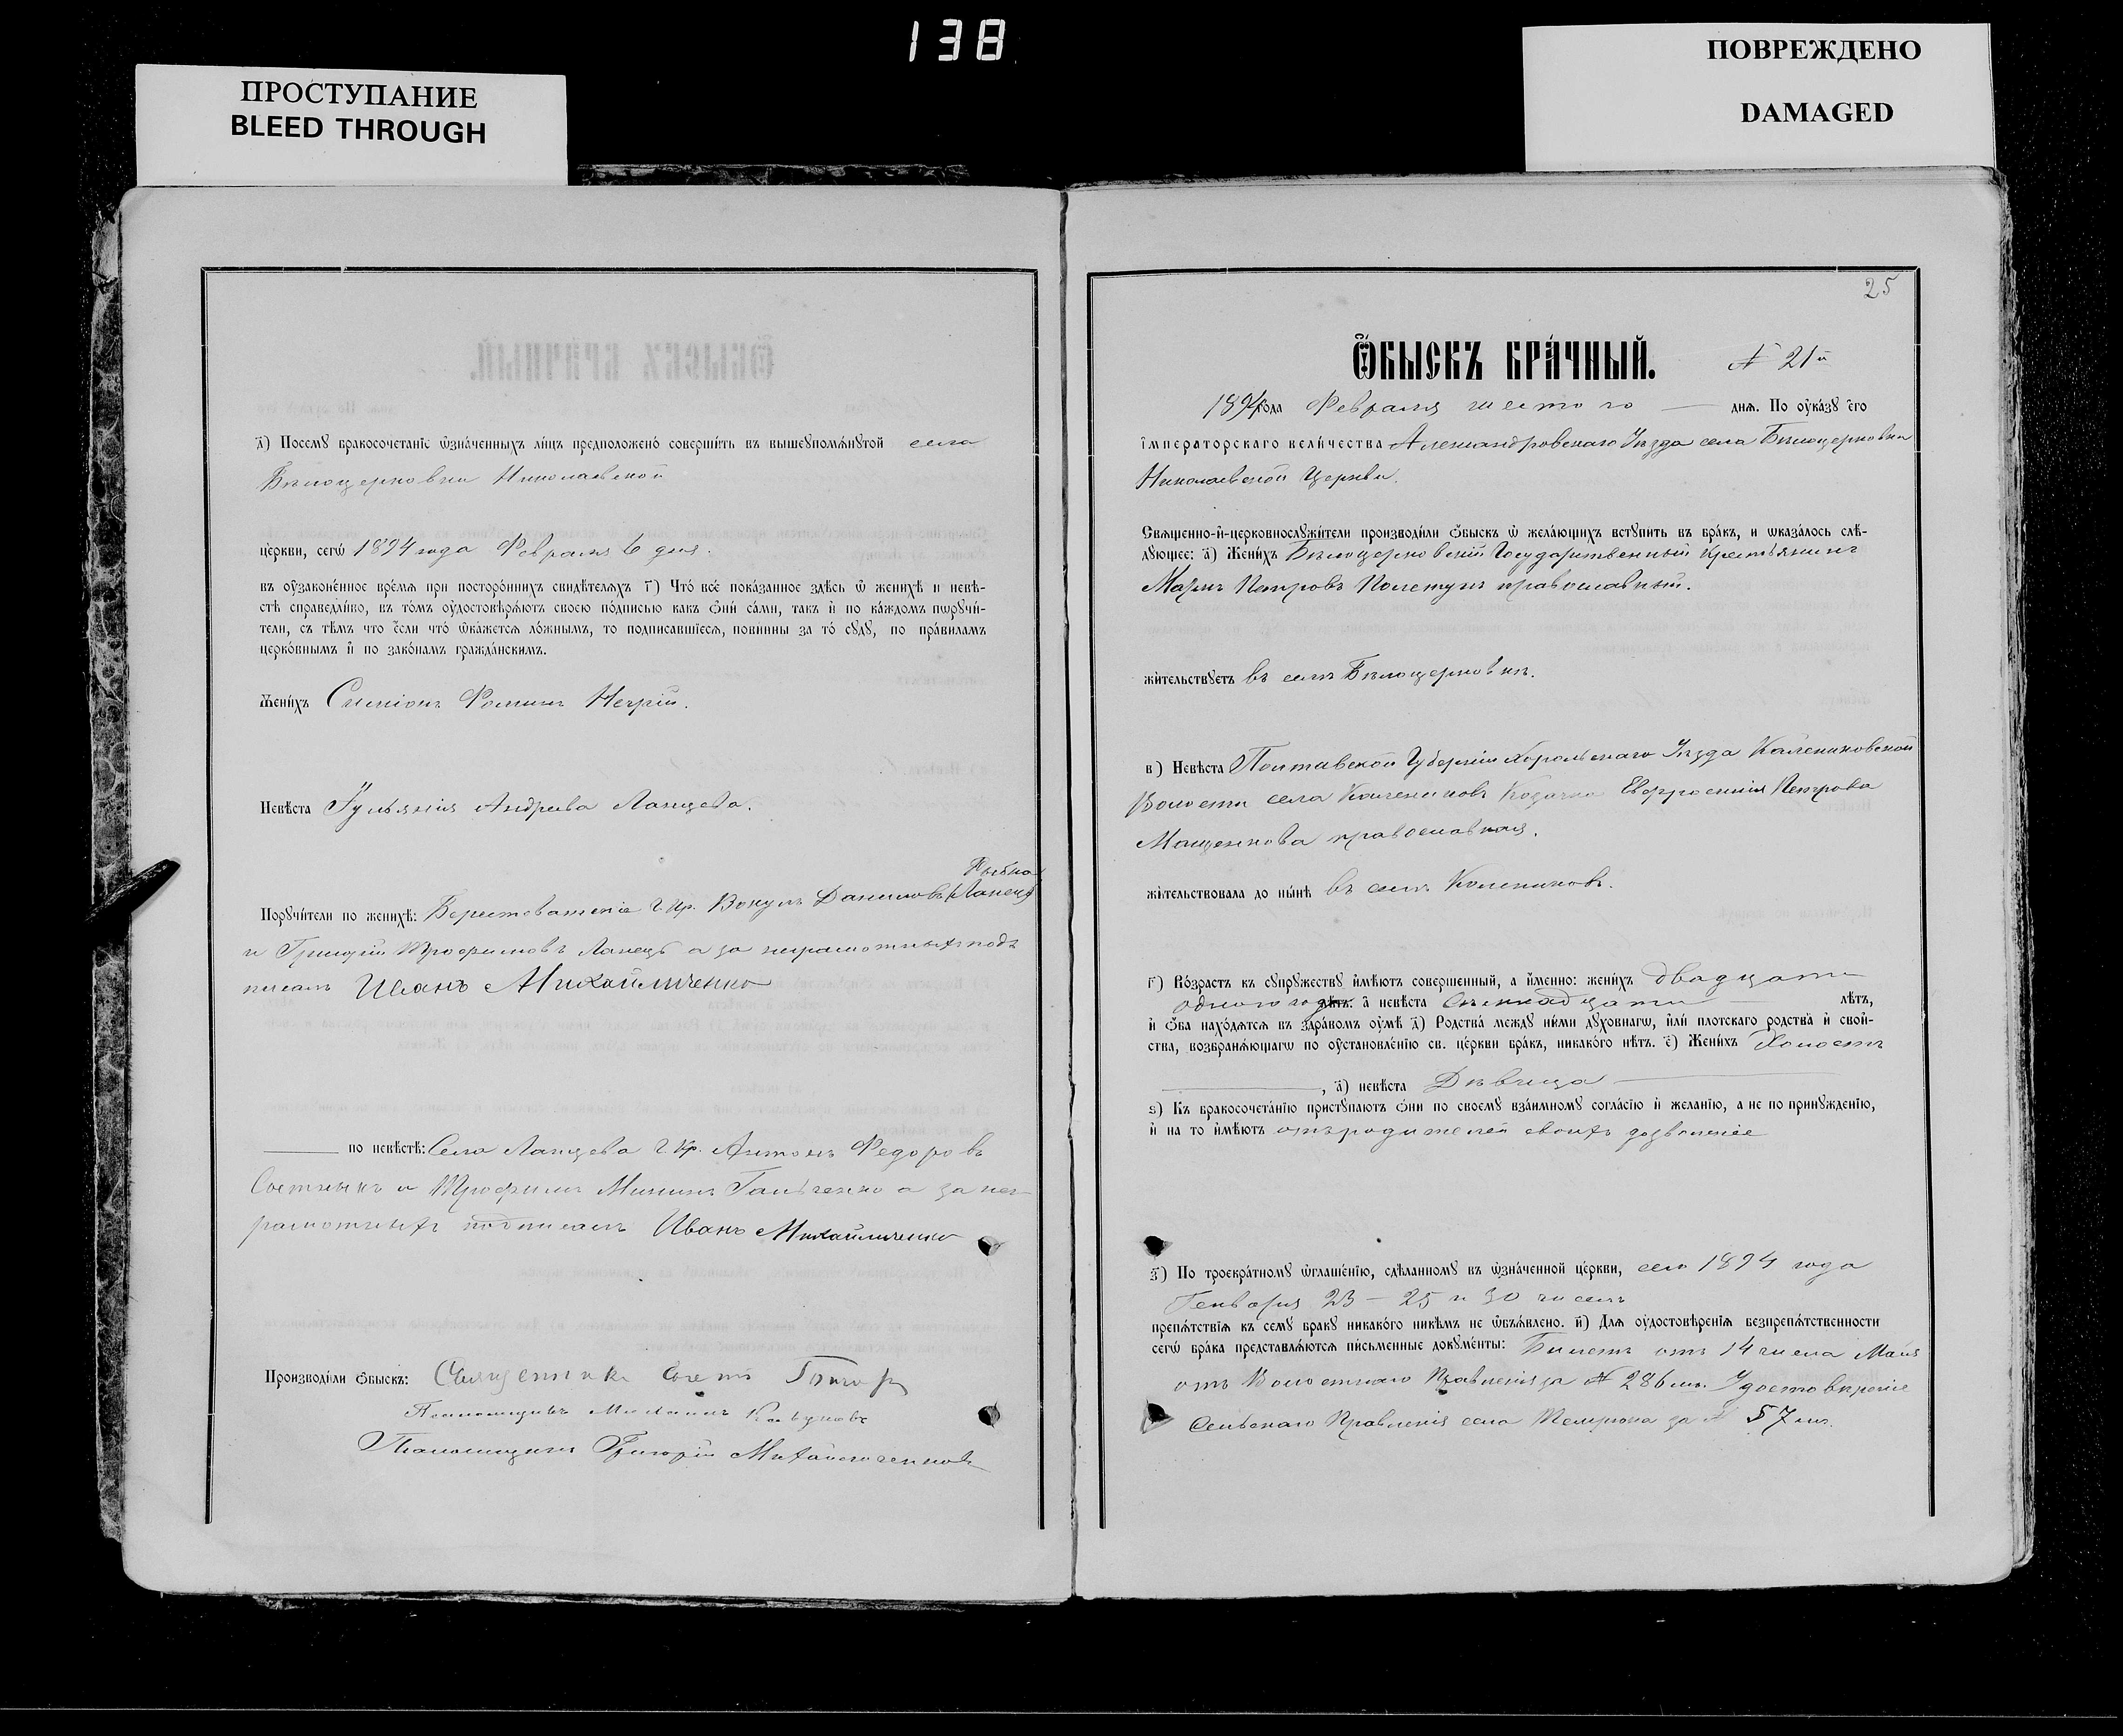 138
ПРОСТУПАНИЕ
BLEED THROUGH
ПОВРЕЖДЕНО
DAMAGED
д҃) Посемꙋ бракосочетанїе ѡзна́ченныхъ ли́цъ предположено́ соверши́ть въ вышеꙋпомѧ́нꙋтой села
Бѣлоцерковки Николаевской
це́ркви, сегѡ̀ 1894 года Февраля 6 дня.
въ ѹ҆зако́ненное вре́мѧ при посторо́ннихъ свидѣ́телѧхъ г҃) Что́ все́ пока́занное здѣ́сь ѡ҆ женихѣ̀ и невѣ́-
стѣ справедли́во, въ то́мъ ѹ҆достовѣрѧ́ютъ своею по́дписью какъ ѻ҆ни́ са́ми, та́къ и҆ по ка́ждомъ порꙋчи́-
тели, съ тѣ́мъ что є҆́сли что́ ѡ҆ка́жетсѧ ло́жнымъ, то подписавшїесѧ, пови́нны за то́ сꙋдꙋ̀, по пра́виламъ
церко́внымъ и҆ по зако́намъ гражда́нскимъ.
Жени́хъ Симеонъ Фоминъ
Невѣ́ста Їульянія Андреева Ланцева.
Порꙋчи́тели по женихѣ̀: Берестоватскіе Г. кр. Вакулъ Даниловъ
и Григорій Трофимовъ Ланецъ а за неграмотныхъ под
писалъ Иванъ Михайличенко
по невѣ́стѣ: Села Ланцева Г. кр. Антонъ Федоровъ
и Трофимъ Мининъ Гальченко а за нег-
рамотныхъ подписалъ Иванъ Михайличенко
Производи́ли ѻ҆́быскъ: Священникъ
Псаломщикъ Михаилъ
Псаломщикъ Григорій Михайличенковъ
25
Ѻ҆́БЫСКЪ БРА́ЧНЫЙ. № 21й
1894 года Февраля шестого дня. По ѹ҆ка́зꙋ є҆гѡ̀
і҆мператорскаго вели́чества Александровскаго Уѣзда села Бѣлоцерковки
Николаевской Церкви.
Свѧщенно-и҆-церковнослꙋжи́тели производи́ли ѻ҆́быскъ ѡ҆ жела́ющихъ встꙋпи́ть въ бра́къ, и ѡ҆каза́лось слѣ́-
дꙋющее: а҃) Жени́хъ Бѣлоцерковскій Государственный крестьянинъ
Маркъ Петровъ Полетунъ православный.
жи́тельствꙋетъ въ селѣ Бѣлоцерковкѣ.
в҃) Невѣ́ста Полтавской Губерніи Хорольскаго Уѣзда Калениковской
Волости села Калениковъ Козачка Евфросинія Петрова
Мащенкова православная.
жи́тельствовала до ны́нѣ въ селѣ Калениковѣ.
г҃) Во́зрастъ къ сꙋпрꙋ́жествꙋ и҆мѣ́ютъ соверше́нный, а и҆́менно: жени́хъ двадцати
одного года лѣтъ. а҆ невѣ́ста Семнадцати лѣтъ,
и҆ ѻ҆́ба нахо́дѧтсѧ въ здра́вомъ ѹ҆мѣ̀ д҃) Родства̀ междꙋ ни́ми дꙋховнагѡ, и҆лѝ плотскаго родства̀ и҆ свой-
ства, возбранѧ́ющагѡ по ѹ҆становле́нїю св. це́ркви бра́къ, никако́го нѣ́тъ. є҃) Жени́хъ Холостъ
, а҆) невѣ́ста Дѣвица
ѕ҃) Къ бракосочета́нїю пристꙋпа́ютъ ѻ҆ни́ по своемꙋ̀ взаи́мномꙋ согла́сїю и҆ жела́нїю, а не по принꙋжде́нїю,
и҆ на то и҆мѣ́ютъ отъ родителей своихъ дозволеніе
з҃) По троекра́тномꙋ ѡ҆глаше́нїю, сдѣ́ланномꙋ въ ѡ҆зна́ченной це́ркви, сего 1894 года
Генваря 23 – 25 и 30 чиселъ
препѧ́тствїѧ къ семꙋ̀ бракꙋ никако́го никѣ́мъ не ѡ҆бъѧ́влено. и҃) Длѧ ѹ҆достовѣре́нїѧ безпрепѧ́тственности
сегѡ̀ бра́ка представлѧ́ютсѧ пи́сьменные докꙋме́нты: Билетъ отъ 14 числа Мая
отъ Волостнаго Правленія за № 286 мъ. Удостовѣреніе
Сельскаго Правленія села Темрюка за № 57 мъ.